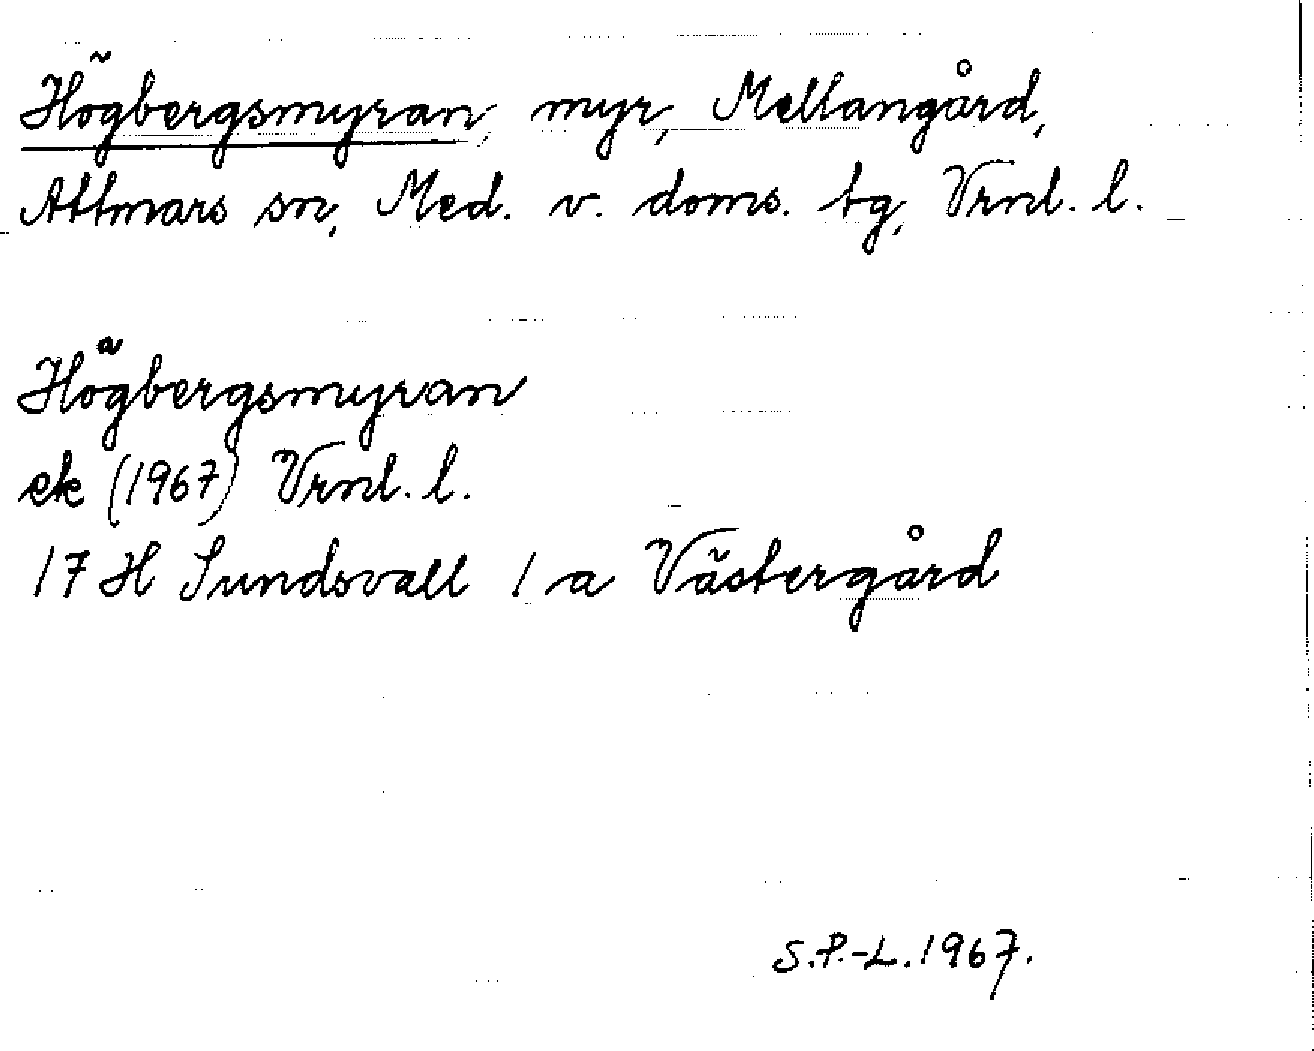 Högbergsmyran, myr, Mellangård,
Attmars sn, Med. v. doms. tg, Vrnl. l.
Högbergsmyran
ek (1967) Vrnl. l.
17 H Sundsvall 1 a Västergård
S.P.-L. 1967.